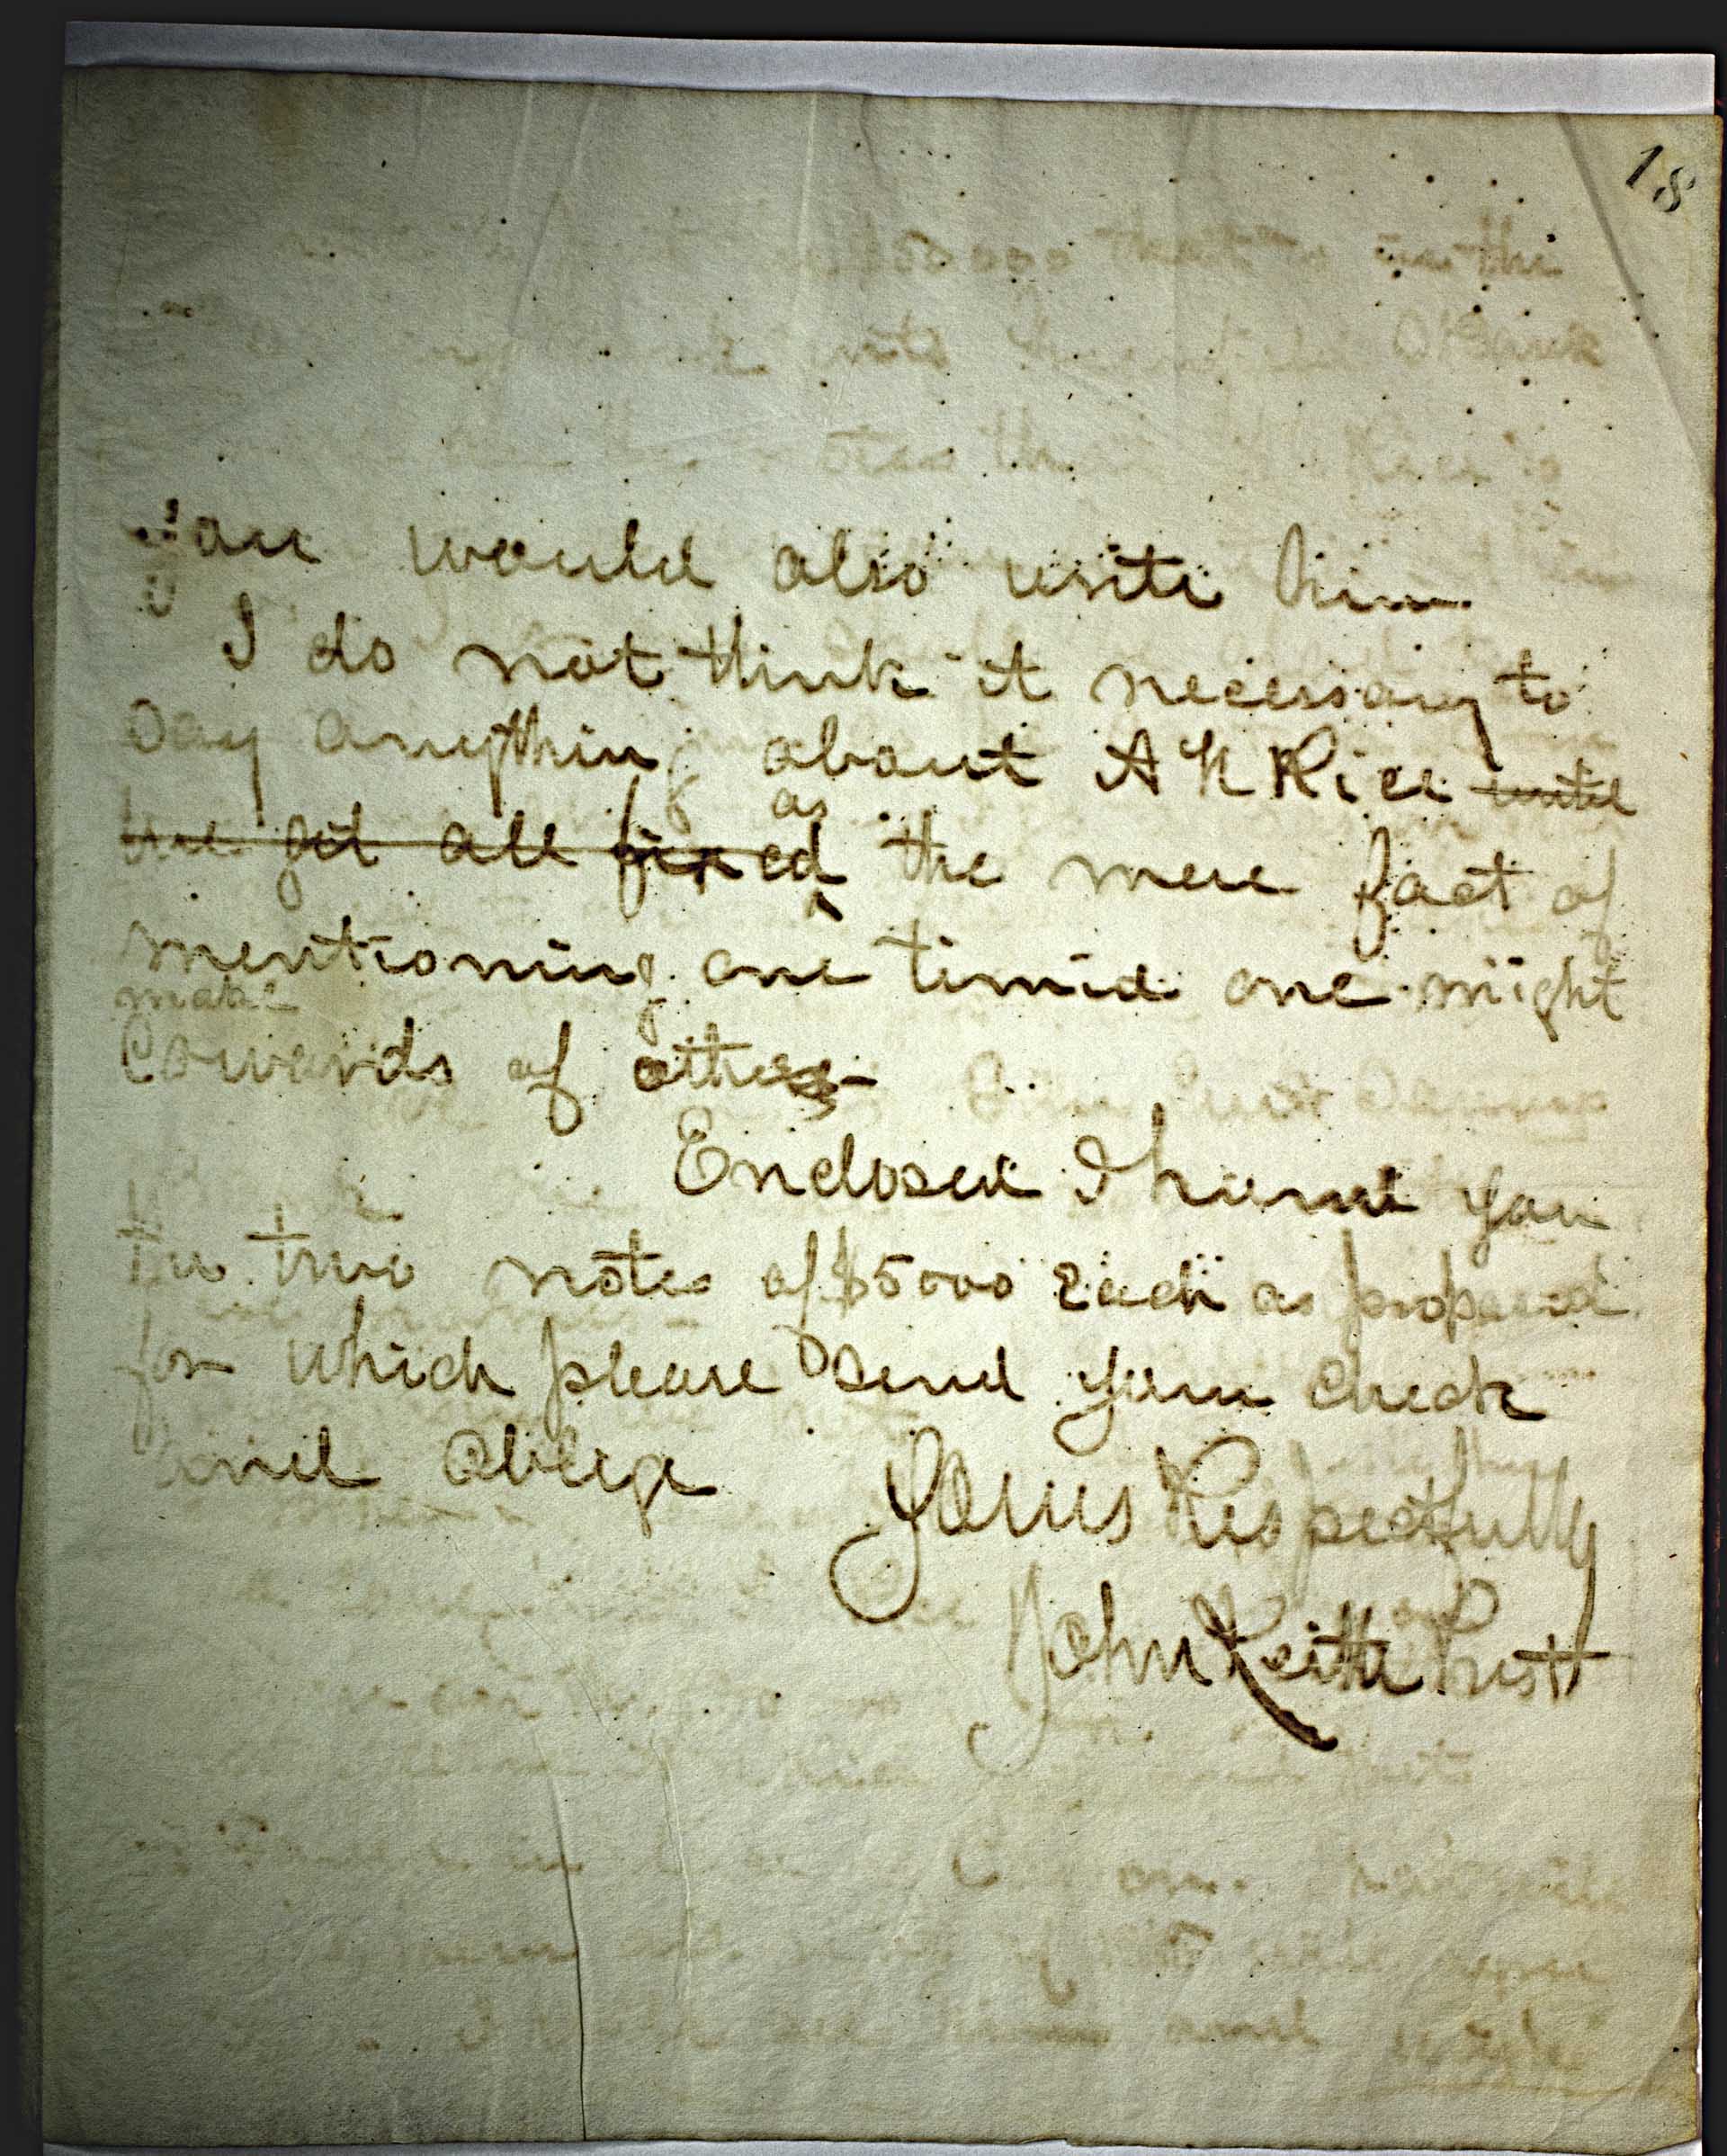 18
you would also write him
I do not think it necessary to
say anything about A H Rice until
we get all fixed as the mere fact of
mentioning one timid one might
make
Cowards of others-
Enclosed I hand you
the two notes of $5000 Each as proposed
for which please send your check
and oblige Yours Respectfully
John Keith